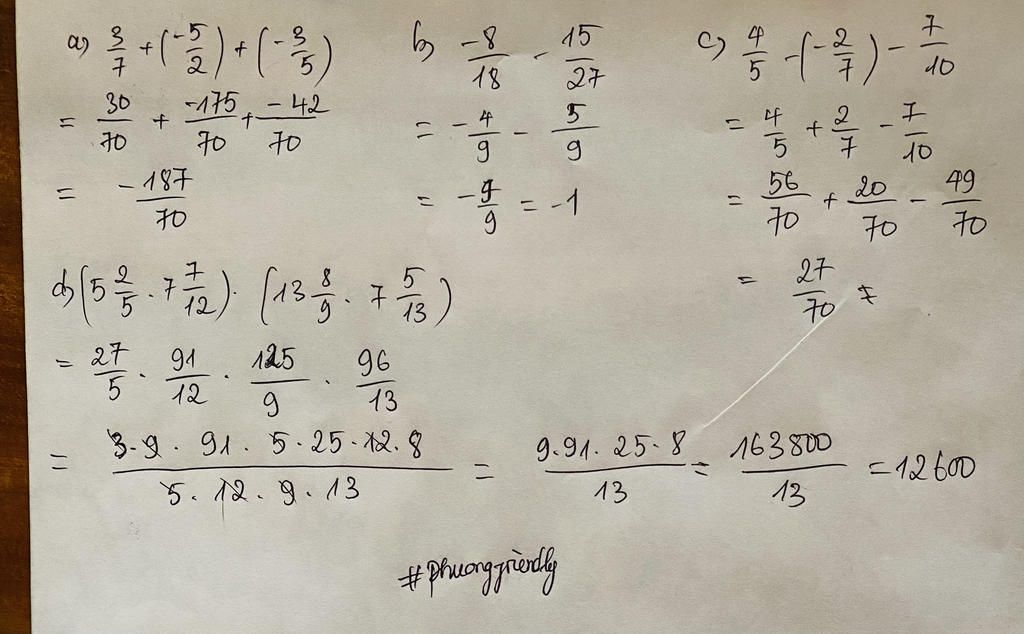 a) 3/7 + (-5/2) + (-3/5)
= 30/70 + -175/70 + -42/70
= -187/70
b) -8/18 - 15/27
= -4/9 - 5/9
= -9/9 = -1
c) 4/5 - (-2/7) - 7/10
= 4/5 + 2/7 - 7/10
= 56/70 + 20/70 - 49/70
= 27/70
d) (5 2/5 . 7 7/12) . (13 8/9 . 7 5/13)
= 27/5 . 91/12 . 125/9 . 96/13
= 3.9 . 91 . 5 . 25 . 12 . 8 / 5 . 12 . 9 . 13 = 9.91.25.8 / 13 = 163800/13 = 12600
#phuongfriendly